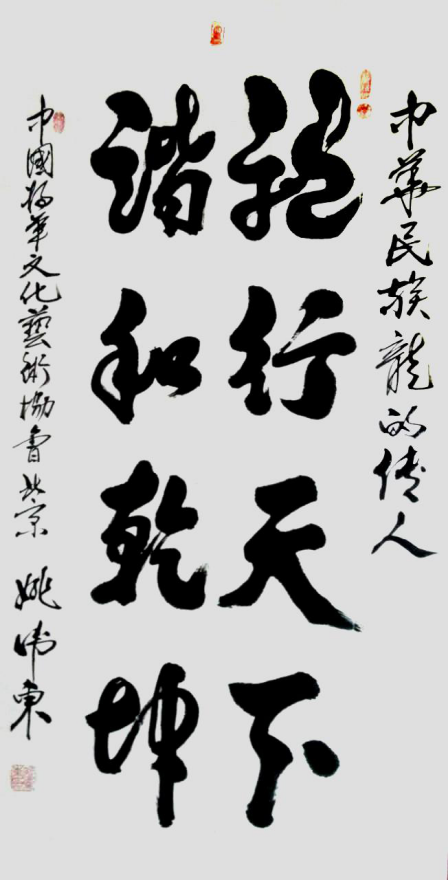 中華民族龍的传人
龍行天下
諧和乾坤
中國華文化藝術協會北京 姚偉東